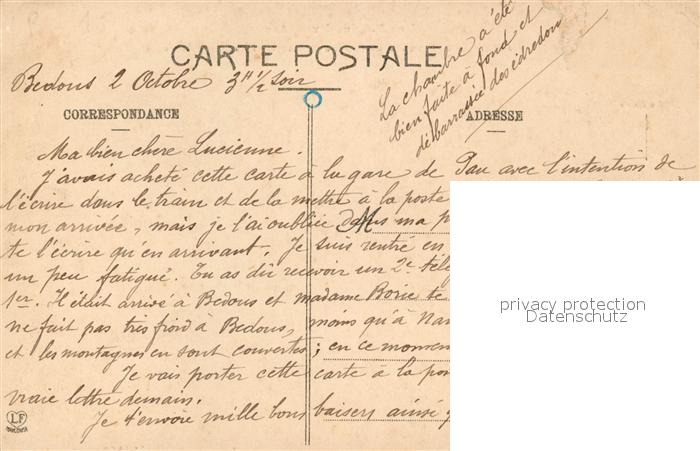 CARTE POSTALE
La chambre a été
bien faite à fond et
débarrassée des édredon
Bedous 2 Octobre 3H 1/2 soir
CORRESPONDANCE
ADRESSE
Ma bien chère Lucienne.
J'avais acheté cette carte à la gare de Pau avec l'intention de
l'écrire dans le train et de la mettre à la poste
mon arrivée, mais je l'ai oubliée dans ma
te l'écrire qu'en arrivant. Je suis rentré en
un peu fatigué. Tu as dû recevoir un 2e
1er. Il était arrivé à Bedous et madame Borie te
ne fait pas très froid à Bedous, moins qu'à
et les montagnes en sont couvertes; en ce
Je vais porter cette carte à la
vraie lettre demain.
Je t'envoie mille bons baisers ainsi
LF
privacy protection
Datenschutz